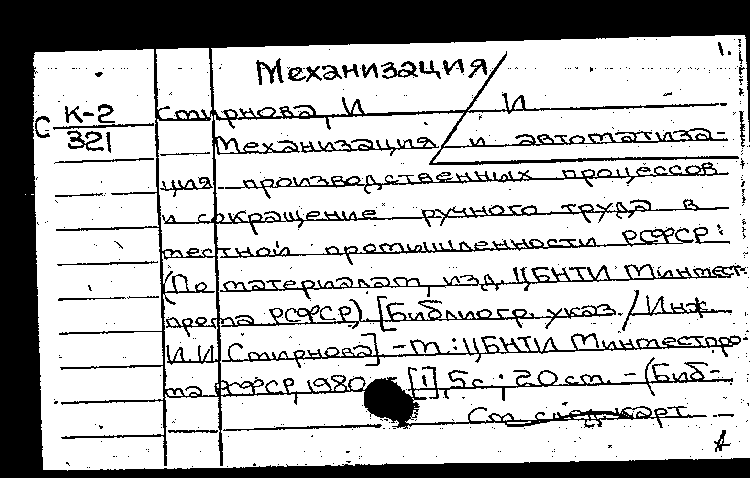 1.
Механизация
С К-2 Смирнова, И И
321 Механизация и автоматиза-
ция производственных процессов
и сокращение ручного труда в
местной промышленности РСФСР:
(По материалам, изд. ЦБНТИ Минмест-
прома РСФСР). [Библиогр. указ. / Инж.
И.И. Смирнова]. - М.: ЦБНТИ Минместпро-
ма РСФСР, 1980. - [1], 5 с.; 20 см. - (Биб-
См след. карт.